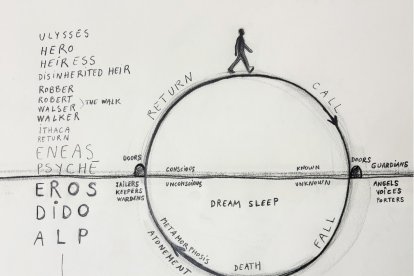 ULYSSES
HERO
HEIRESS
DISINHERITED HEIR
ROBBER
ROBERT
WALSER } THE WALK
WALKER
ITHACA
RETURN
ENEAS
PSYCHE
EROS
DIDO
ALP
RETURN
CALL
DOORS
CONSCIOUS
KNOWN
DOORS
GUARDIANS
JAILERS
KEEPERS
WARDENS
UNCONSCIOUS
UNKNOWN
ANGELS
VOICES
PORTERS
DREAM SLEEP
FALL
METAMORPHOSIS
ATONEMENT
DEATH